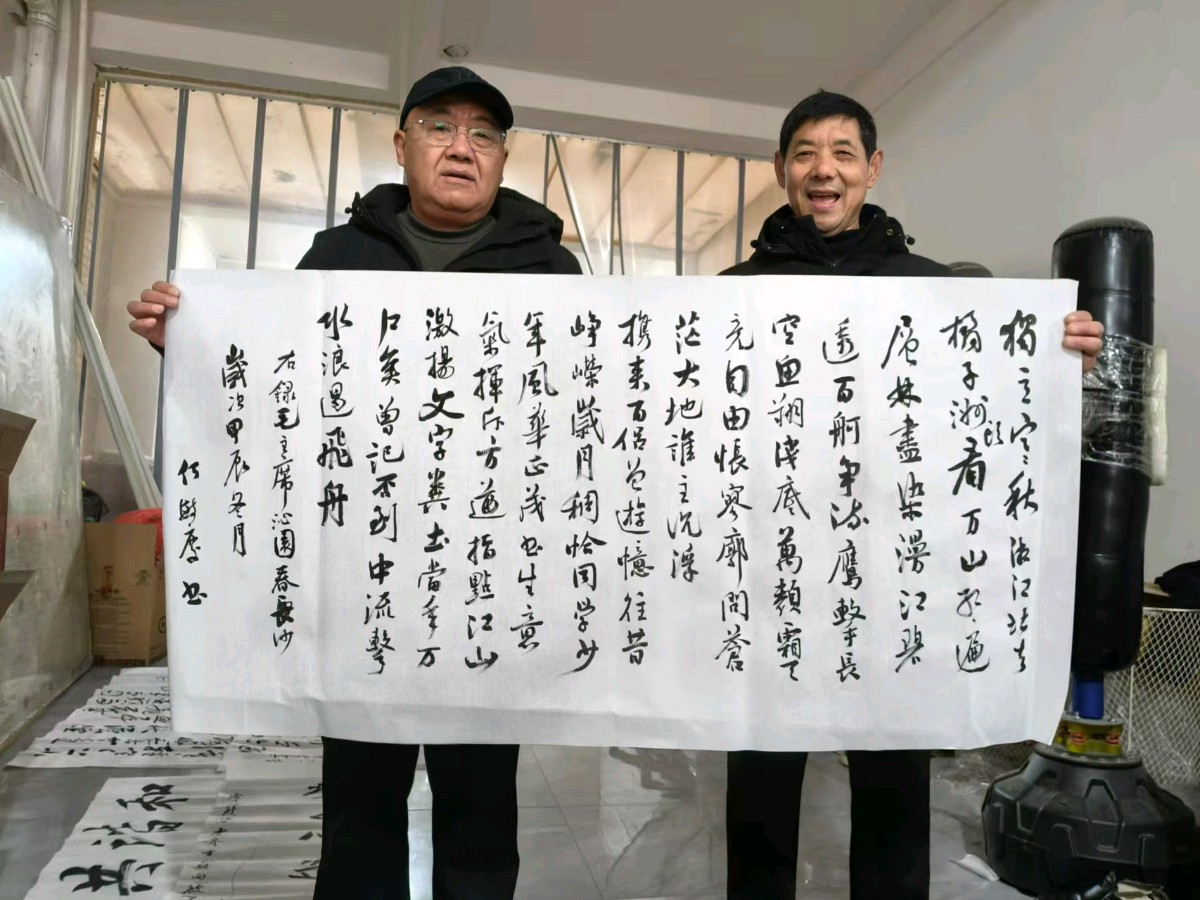 獨立寒秋湘江北去
橘子洲頭看万山红遍
层林盡染漫江碧
透百舸争流鷹擊長
空魚翔浅底萬類霜天
竞自由悵寥廓問蒼
茫大地誰主沉浮
携来百侣曾遊憶往昔
峥嵘歲月稠恰同学少
年風華正茂书生意
氣揮斥方遒指點江山
激揚文字糞土當年万
户侯曾記否到中流擊
水浪遏飛舟
右録毛主席沁園春長沙
歲次甲辰冬月
书